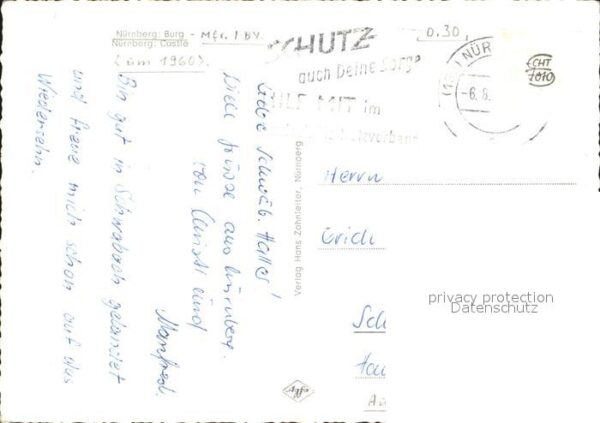 Nürnberg Burg - Mfr. / BY.
Nürnberg. Castle
(um 1960).
0.30,
SCHUTZ
auch Deine Sorge
HILF MIT im
NÜR
-6.6.
ECHT
7010
Liebe Schwäb. Haller!
Viele Grüsse aus Nürnberg.
von und
Manfred.
Bin gut in Schwabach gelandet
und freue mich schon auf das
Wiedersehn.
Verlag Hans Zahnleiter, Nürnberg
Agfa
Herrn
Erich
Sch
privacy protection
Datenschutz